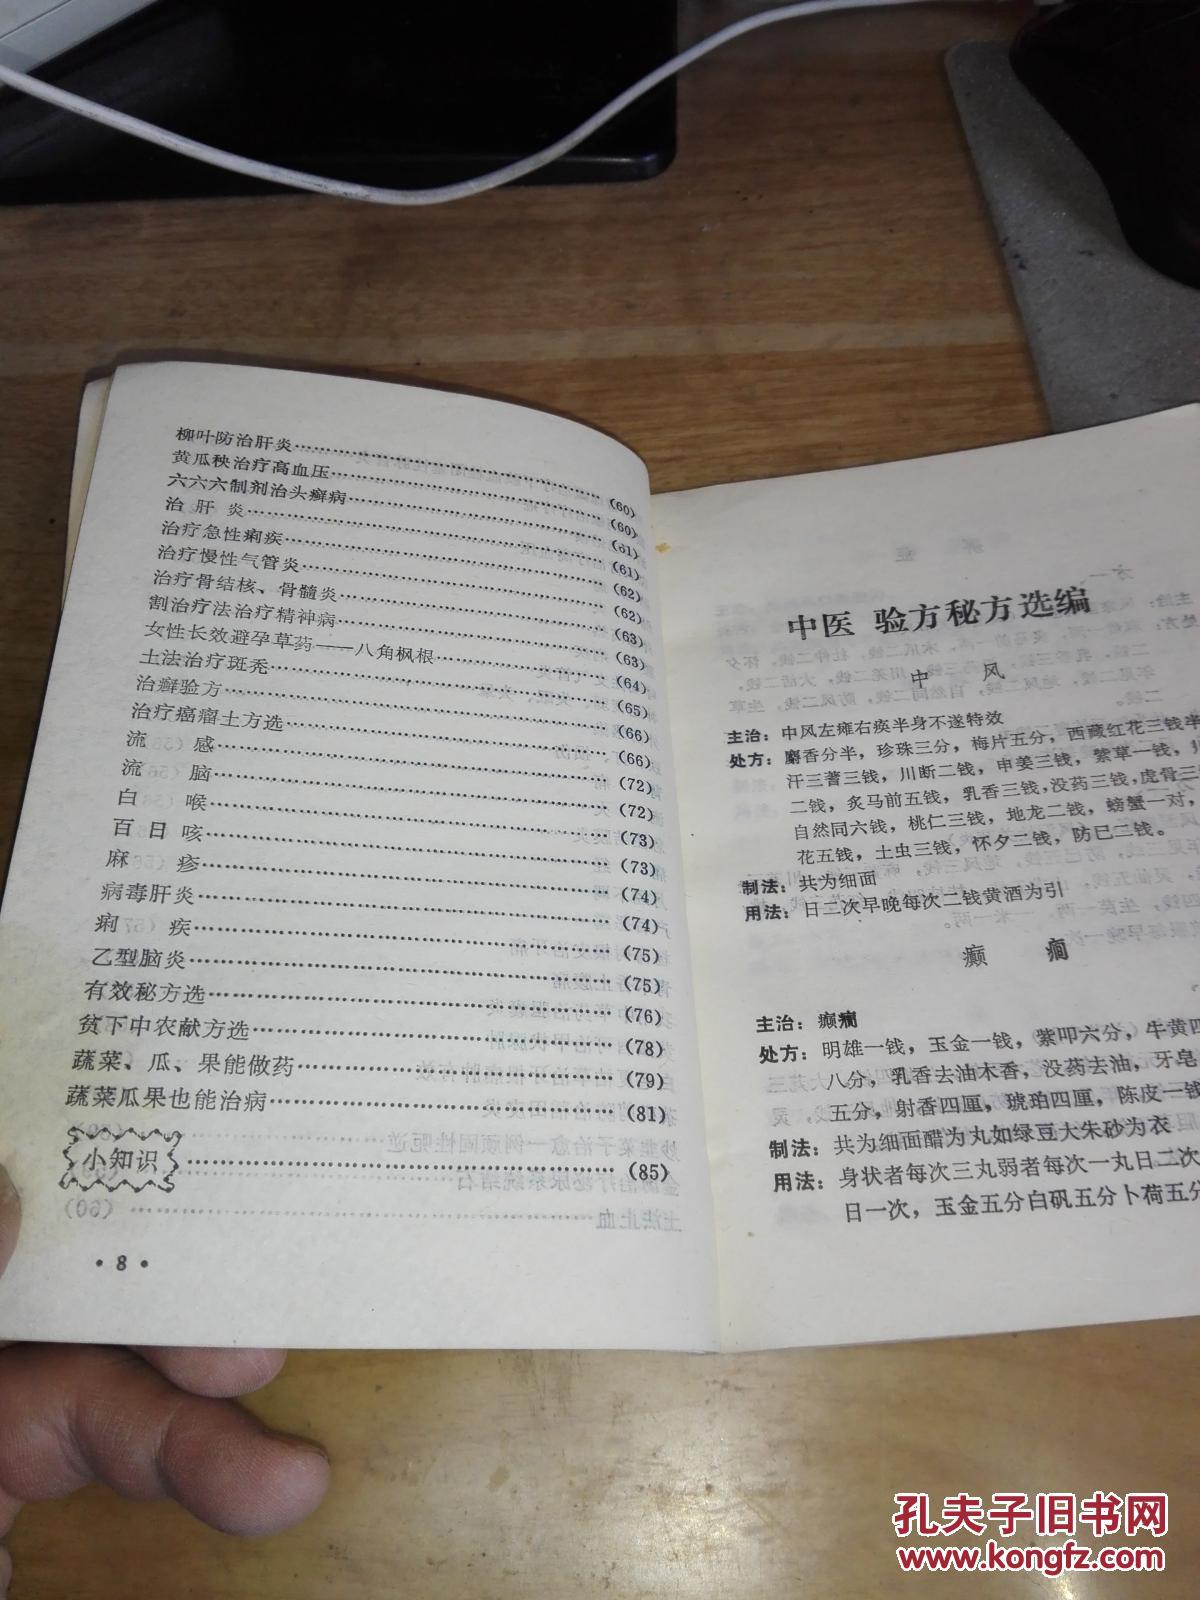 柳叶防治肝炎……………………………(60)
黄瓜秧治疗高血压…………………………(60)
六六六制剂治头癣病………………………(61)
治 肝 炎……………………………(61)
治疗急性痢疾……………………………(62)
治疗慢性气管炎…………………………(62)
治疗骨结核、骨髓炎………………………(63)
割治疗法治疗精神病………………………(63)
女性长效避孕草药——八角枫根……………(64)
土法治疗斑秃……………………………(65)
治癣验方……………………………(66)
治疗癌瘤土方选…………………………(66)
流 感……………………………(72)
流 脑……………………………(72)
白 喉……………………………(73)
百 日 咳……………………………(73)
麻 疹……………………………(74)
病毒肝炎……………………………(74)
痢 疾……………………………(75)
乙型脑炎……………………………(75)
有效秘方选……………………………(76)
贫下中农献方选…………………………(78)
蔬菜、瓜、果能做药………………………(79)
蔬菜瓜果也能治病…………………………(81)
小知识……………………………(85)
• 8 •
中医 验方秘方选编
中 风
主治：中风左瘫右痪半身不遂特效
处方：麝香分半，珍珠三分，梅片五分，西藏红花三钱半
汗三蓍三钱，川断二钱，申姜三钱，紫草一钱，
二钱，炙马前五钱，乳香三钱，没药三钱，虎骨三
自然同六钱，桃仁三钱，地龙二钱，螃蟹一对，
花五钱，土虫三钱，怀夕二钱，防已二钱。
制法：共为细面
用法：日二次早晚每次二钱黄酒为引
癫 痫
主治：癫痫
处方：明雄一钱，玉金一钱，紫叩六分，牛黄四
八分，乳香去油木香，没药去油，牙皂
五分，射香四厘，琥珀四厘，陈皮一钱
制法：共为细面醋为丸如绿豆大朱砂为衣
用法：身状者每次三丸弱者每次一丸日二次
日一次，玉金五分白矾五分卜荷五分
孔夫子旧书网
www.kongfz.com